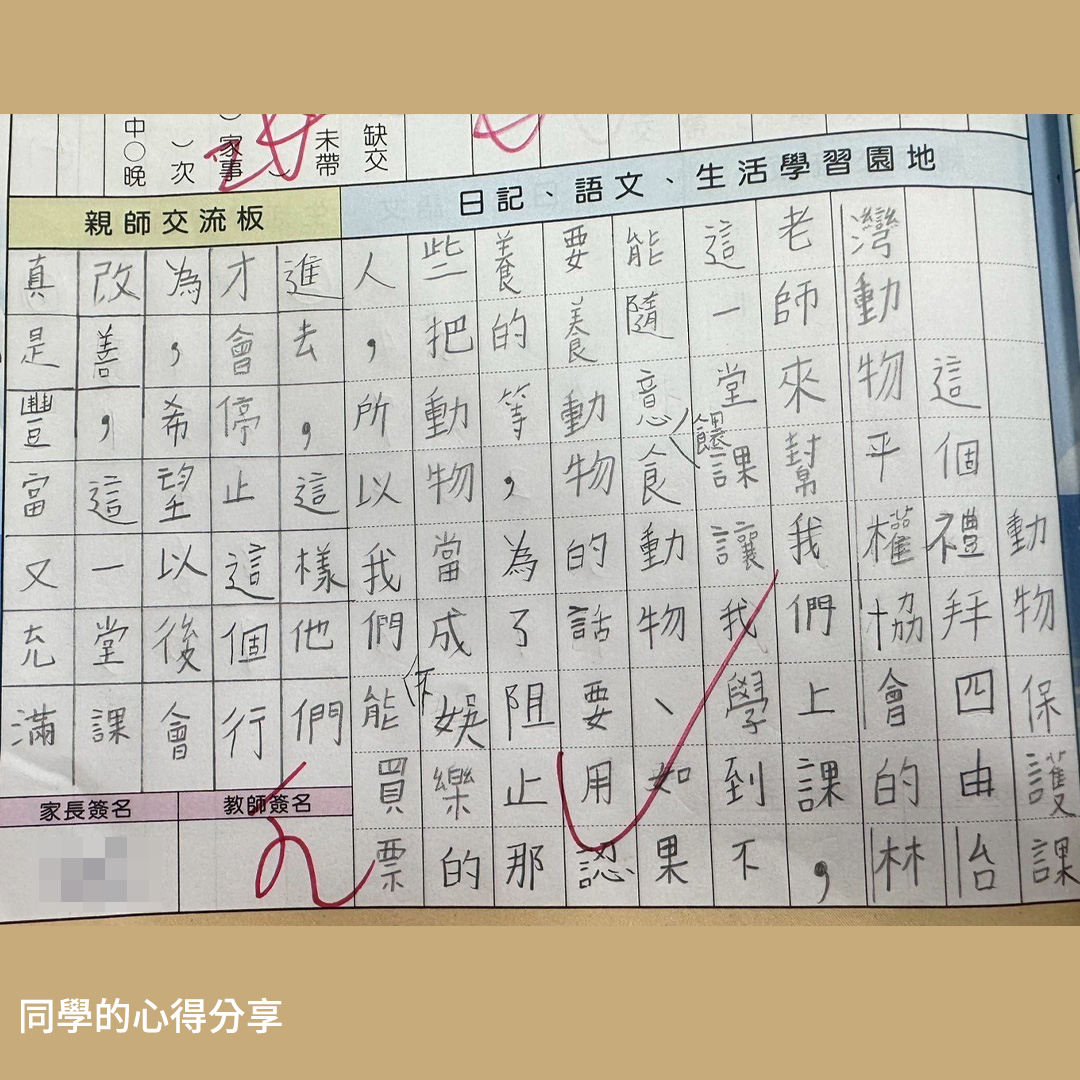 缺交
未帶
）家事
）次
中○晚
日記、語文、生活學習園地
親師交流板
動物保護課
這個禮拜四由台
灣動物平權協會的林
老師來幫我們上課，
這一堂課讓我學到不
能隨意餵食動物、如果
要養動物的話要用認
養的等，為了阻止那
些把動物當成娛樂的
人，所以我們不能買票
進去，這樣他們
才會停止這個行
為，希望以後會
改善，這一堂課
真是豐當又充滿
教師簽名
家長簽名
同學的心得分享